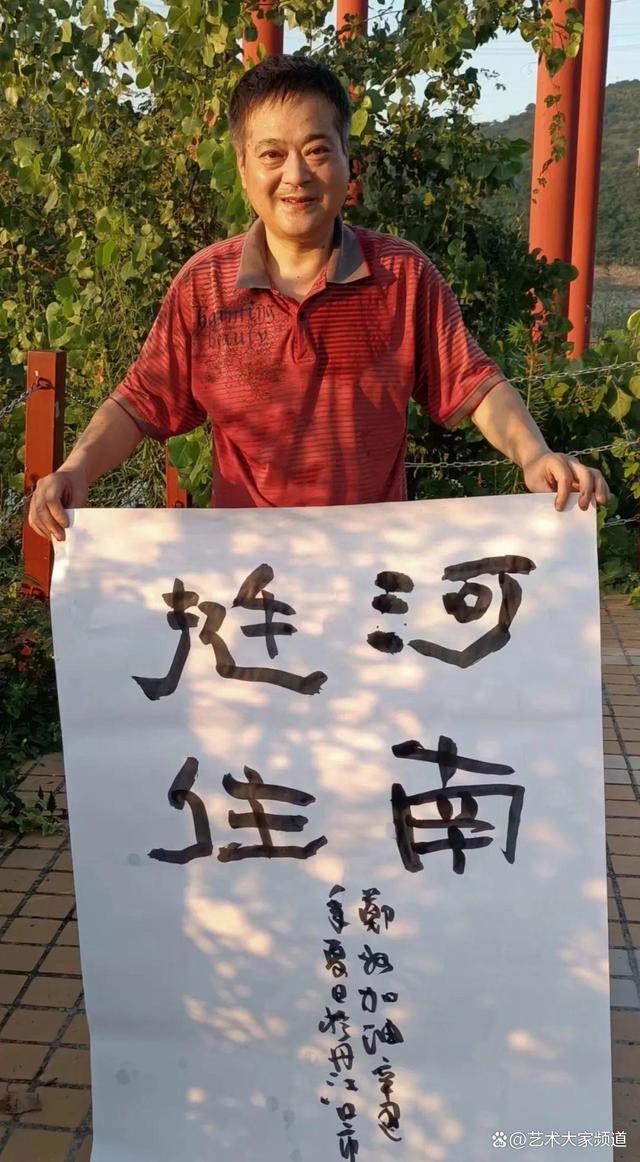 beauty
河南
挺住
鄭州加油辛丑
年夏日於丹江口市
艺术大家频道